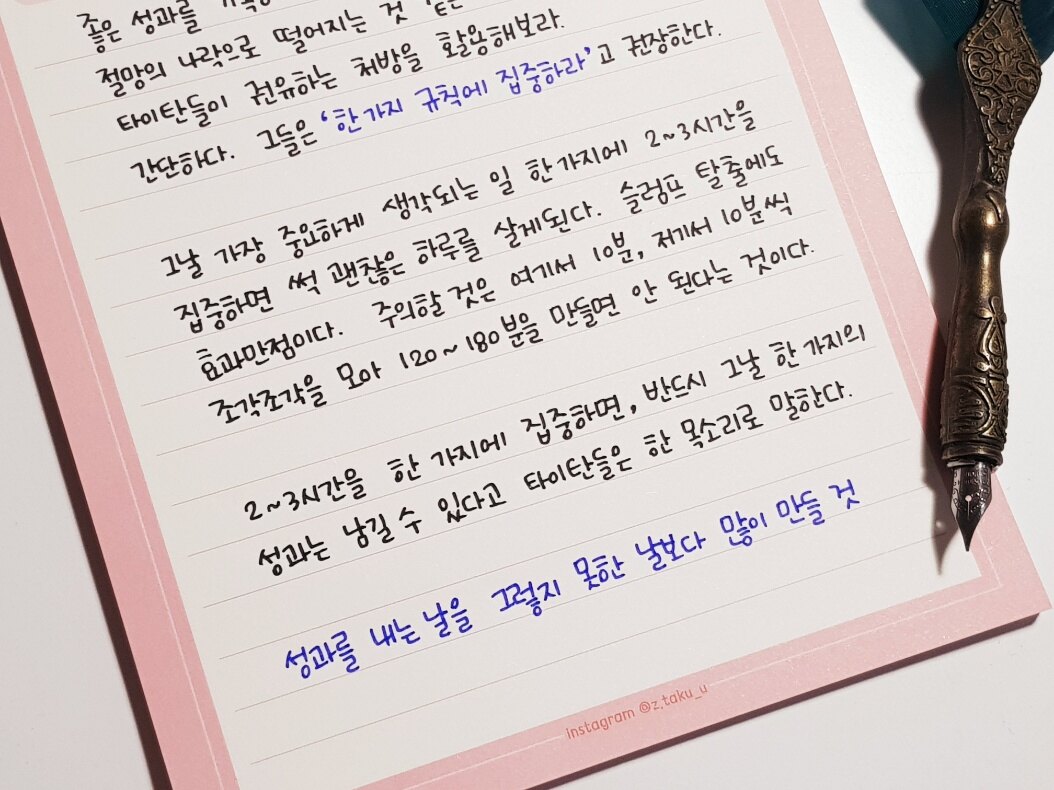 좋은 성과를
절망의 나락으로 떨어지는 것
타이탄들이 권유하는 처방을 활용해보라.
간단하다. 그들은 ‘한가지 규칙에 집중하라’고 권장한다.
그날 가장 중요하게 생각되는 일 한가지에 2~3시간을
집중하면 썩 괜찮은 하루를 살게된다. 슬럼프 탈출에도
효과만점이다. 주의할 것은 여기서 10분, 저기서 10분씩
조각조각을 모아 120~180분을 만들면 안 된다는 것이다.
2~3시간을 한 가지에 집중하면, 반드시 그날 한 가지의
성과는 남길 수 있다고 타이탄들은 한 목소리로 말한다.
성과를 내는 날을 그렇지 못한 날보다 많이 만들 것
instagram @z.taku_u